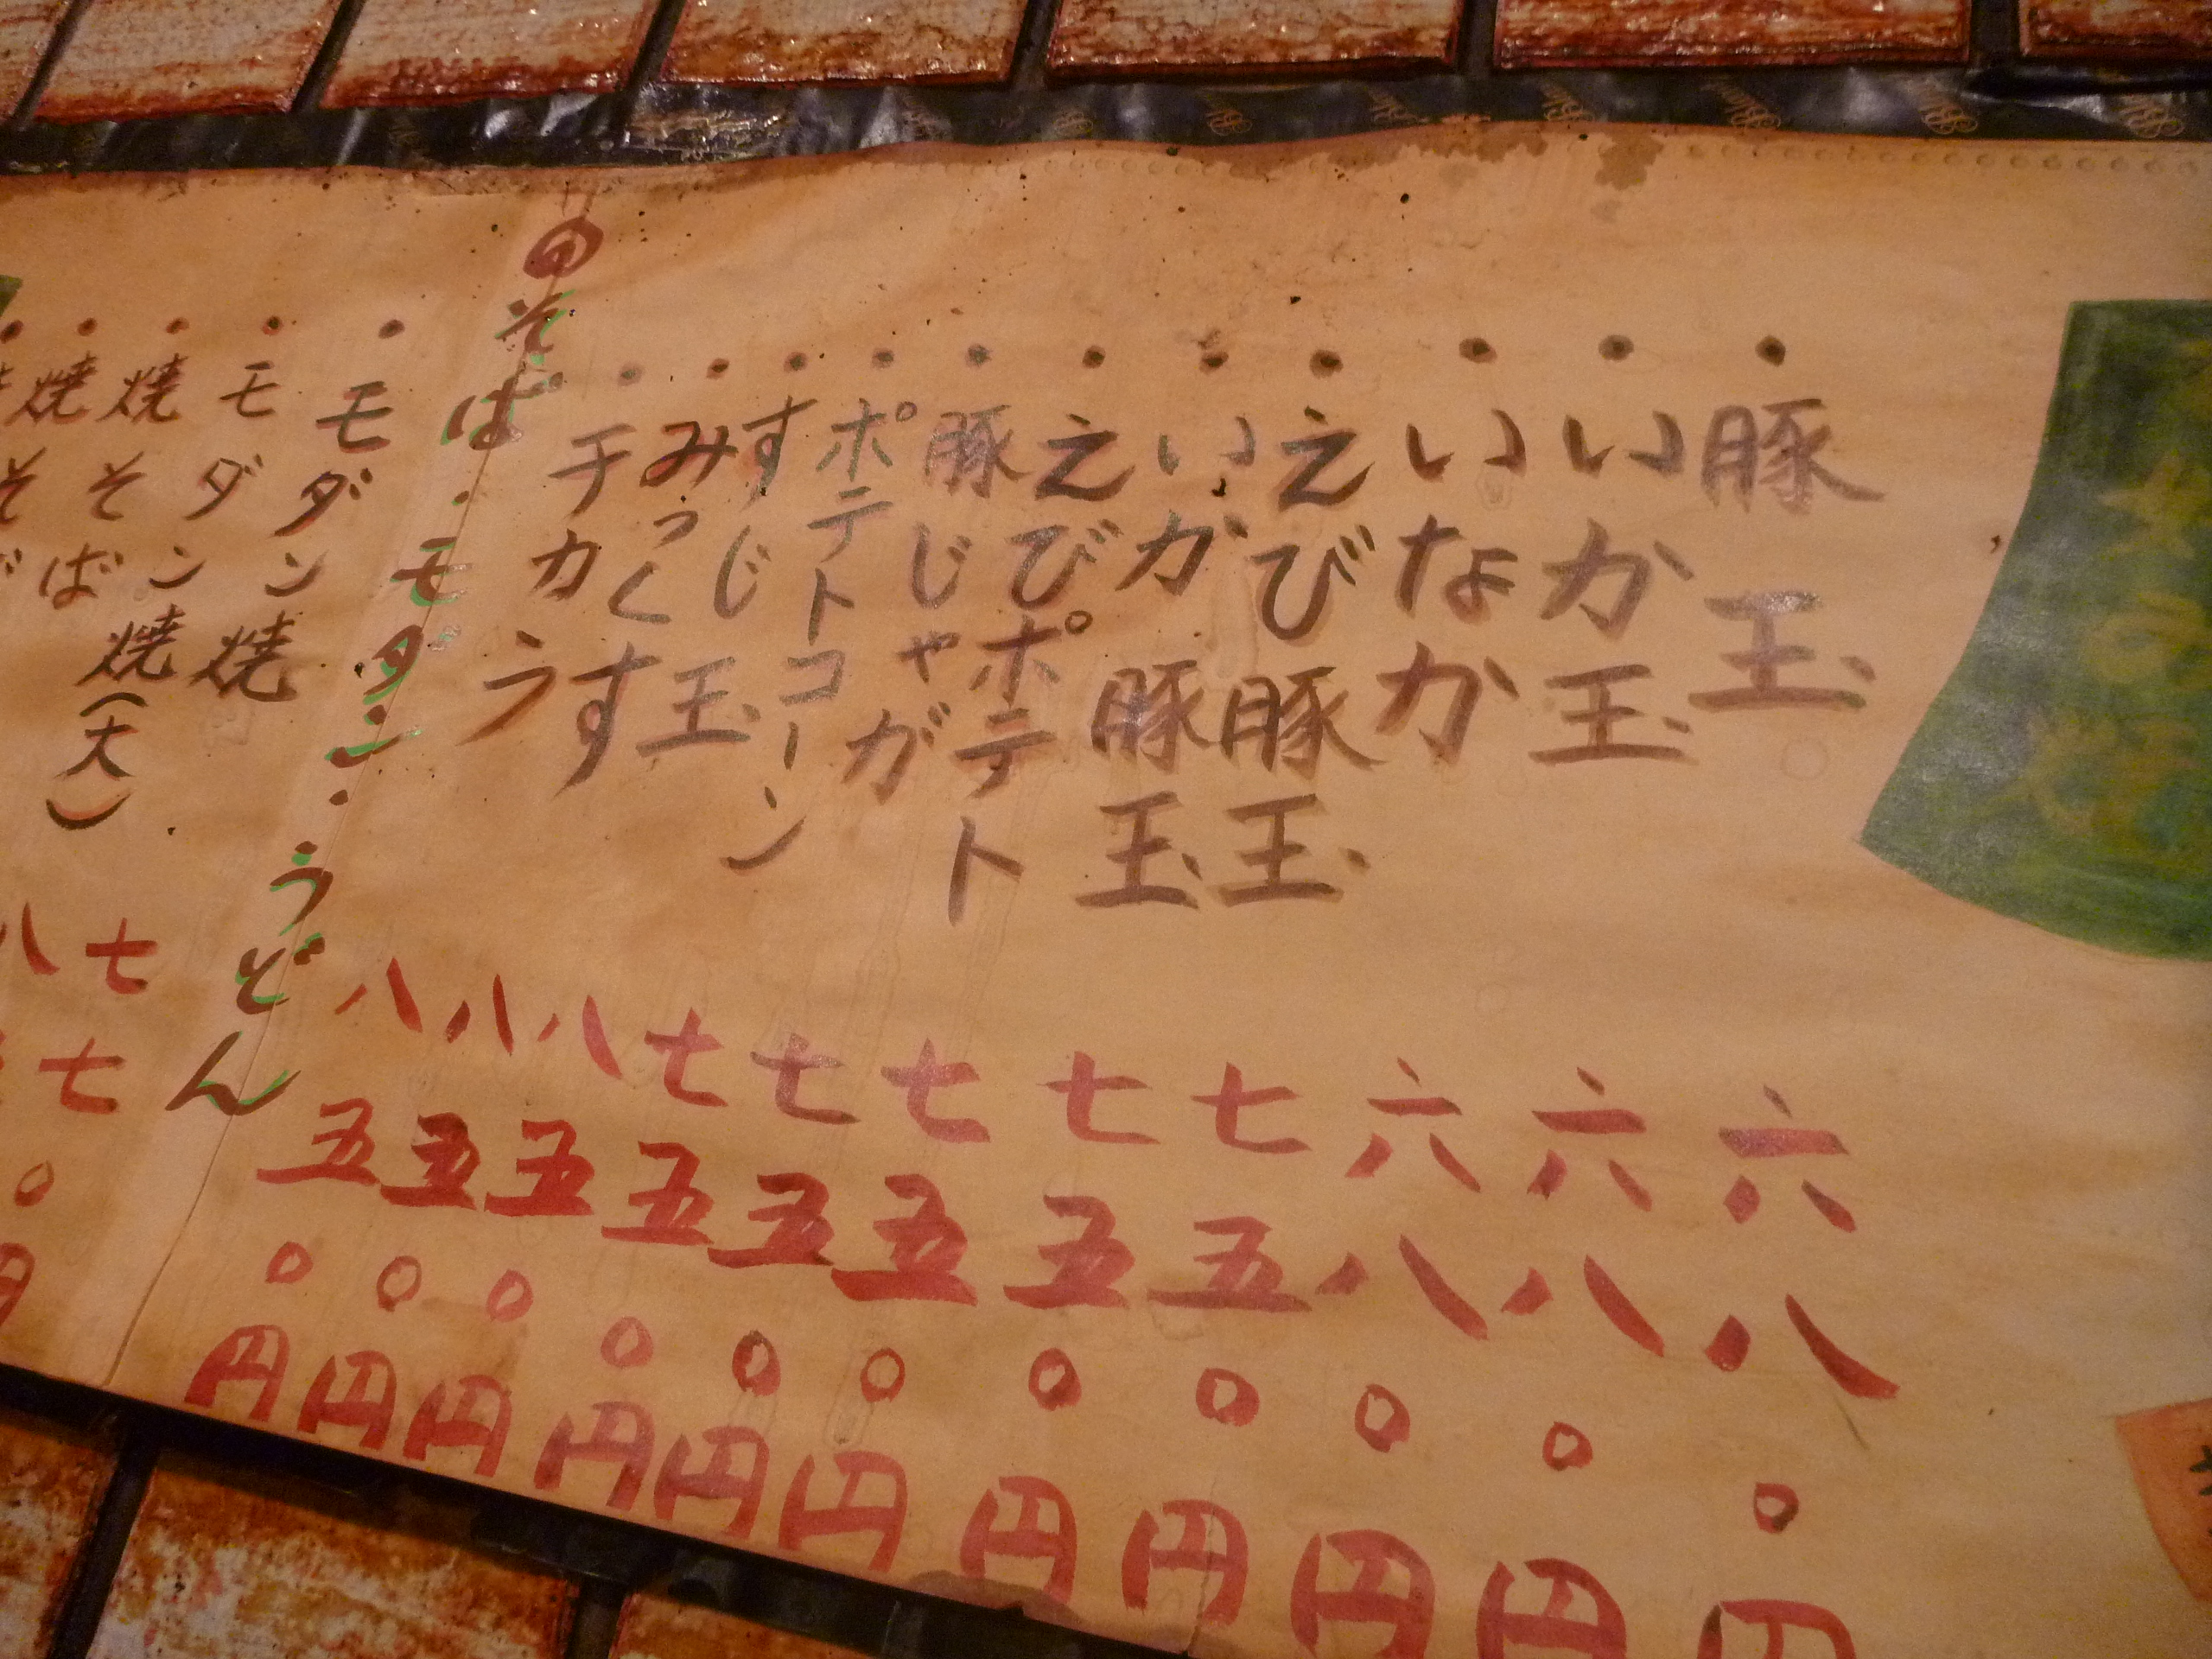 ・豚玉 六八〇円
・いか玉 六八〇円
・いなか 六八〇円
・えび豚玉 七五〇円
・いか豚玉 七五〇円
・えびポテト 七五〇円
・豚じゃが 七五〇円
・ポテトコーン 七五〇円
・すじ玉 八五〇円
・みっくす 八五〇円
・チカラ 八五〇円
そば・モダン・うどん
・モダン焼 七七〇円
・モダン焼(大) 八
・焼そば
・焼そば